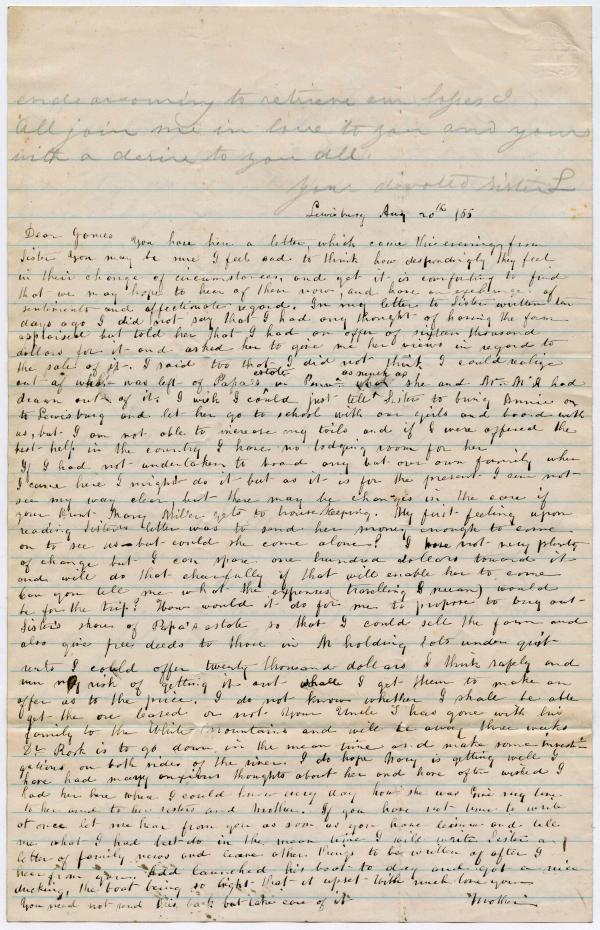 endeavouring to retrieve our losses I
All join me in love to you and yours
with a desire to you all.
Your devoted sister L
Lewisburg Aug 20th /55
Dear James You have here a letter which came this evening from
Sister You may be sure I feel sad to think how despondingly they feel
in their change of circumstances, and yet it is comforting to find
that we may hope to hear of them now and have an exchange of
sentiments and affectionate regard. In my letter to Sister written ten
days ago I did not say that I had any thought of having the farm
appraised but told her that I had an offer of sixteen thousand
dollars for it and asked her to give me her views in regard to
the sale of it. I said two that I did not think I could realize
out of what was left of Papa's estate in Penna as much as she and Mr. had
drawn out of it. I wish I could just tell Sister to bring Annie on
to Lewisburg and let her go to school with our girls and board with
us, but I am not able to increase my toils and if I were offered the
best help in the country I have no lodging room for her
If I had not undertaken to board any but our own family when
I came here I might do it but as it is for the present I can not
see my way clear, but there may be changes in the case if
your Aunt Mary Miller gets to housekeeping. My first feeling upon
reading Sisters letter was to send her money enough to come
on to see us but could she come alone? I have not very plenty
of change but I can spare one hundred dollars toward it
and will do that cheerfully if that will enable her to come
Can you tell me what the expenses (travelling I mean) would
be for the trip? How would it do for me to propose to buy out
Sister's share of Papa's estate so that I could sell the farm and
also give free deeds to those in holding lots under quit
rents I could offer twenty thousand dollars I think safely and
run no risk of getting it out shall I get them to make an
offer as to the price. I do not know whether I shall be able
get the ore leased or not. Your Uncle has gone with his
family to the White Mountains and will be away three weeks
Dr Rock is to go down in the mean time and make some investi-
gations on both sides of the river. I do hope Mary is getting well I
have had many anxious thoughts about her and have often wished I
had her here when I could know every day how she was Give my love
to her and to her sisters and Mother. If you have not time to write
at once let me hear from you as soon as you have leisure and tell
me what I had best do in the mean time I will write Sister a
letter of family news and leave other things to be written of after I
hear from you. launched his boat to day and got a nice
ducking, the boat being so light that it upset With much love your
You need not send this back but take care of it Mother